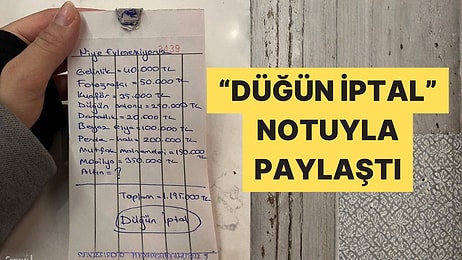 Niye Evlenemiyoruz
3439
Gelinlik = 40.000 TL
Fotoğrafçı = 50.000 TL
Kuaför = 35.000 TL
Düğün salonu = 250.000 TL
Damatlık = 20.000 TL
Beyaz eşya = 100.000 TL
Perde halı = 200.000 TL
Mutfak malzemeleri = 150.000 TL
Mobilya = 350.000 TL
Altın = ?
Toplam = 1.195.000 TL
Düğün İptal
“DÜĞÜN İPTAL”
NOTUYLA
PAYLAŞTI